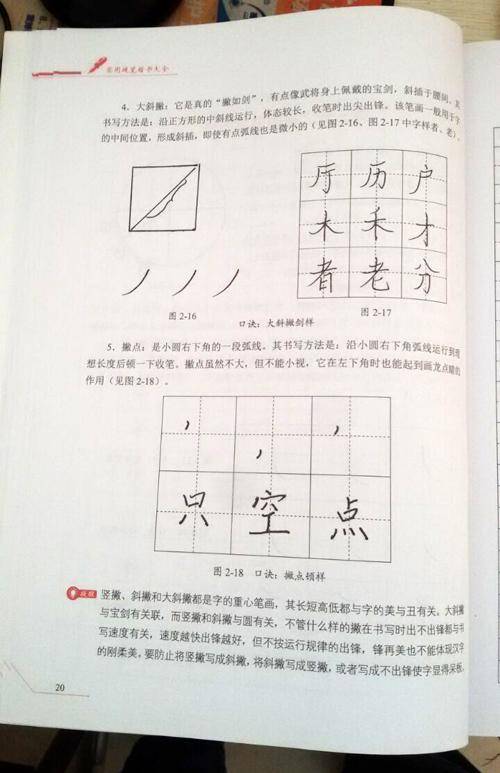 实用硬笔楷书大全
4．大斜撇：它是真的“撇如剑”，有点像武将身上佩戴的宝剑，斜插于腰间，其
书写方法是：沿正方形的中斜线运行，体态较长，收笔时出尖出锋。该笔画一般用于字
的中间位置，形成斜插，即使有点弧线也是微小的（见图2-16、图2-17中字样者、老）。
厅 历 户
木 禾 才
者 老 分
图 2-16
图 2-17
口诀：大斜撇剑样
5．撇点：是小圆右下角的一段弧线。其书写方法是：沿小圆右下角弧线运行到理
想长度后顿一下收笔。撇点虽然不大，但不能小视，它在左下角时也能起到画龙点睛的
作用（见图2-18）。
只 空 点
图 2-18 口诀：撇点顿样
竖撇、斜撇和大斜撇都是字的重心笔画，其长短高低都与字的美与丑有关。大斜撇
与宝剑有关联，而竖撇和斜撇与圆有关，不管什么样的撇在书写时出不出锋都与书
写速度有关，速度越快出锋越好，但不按运行规律的出锋，锋再美也不能体现汉字
的刚柔美。要防止将竖撇写成斜撇，将斜撇写成竖撇，或者写成不出锋使字显得呆板。
20